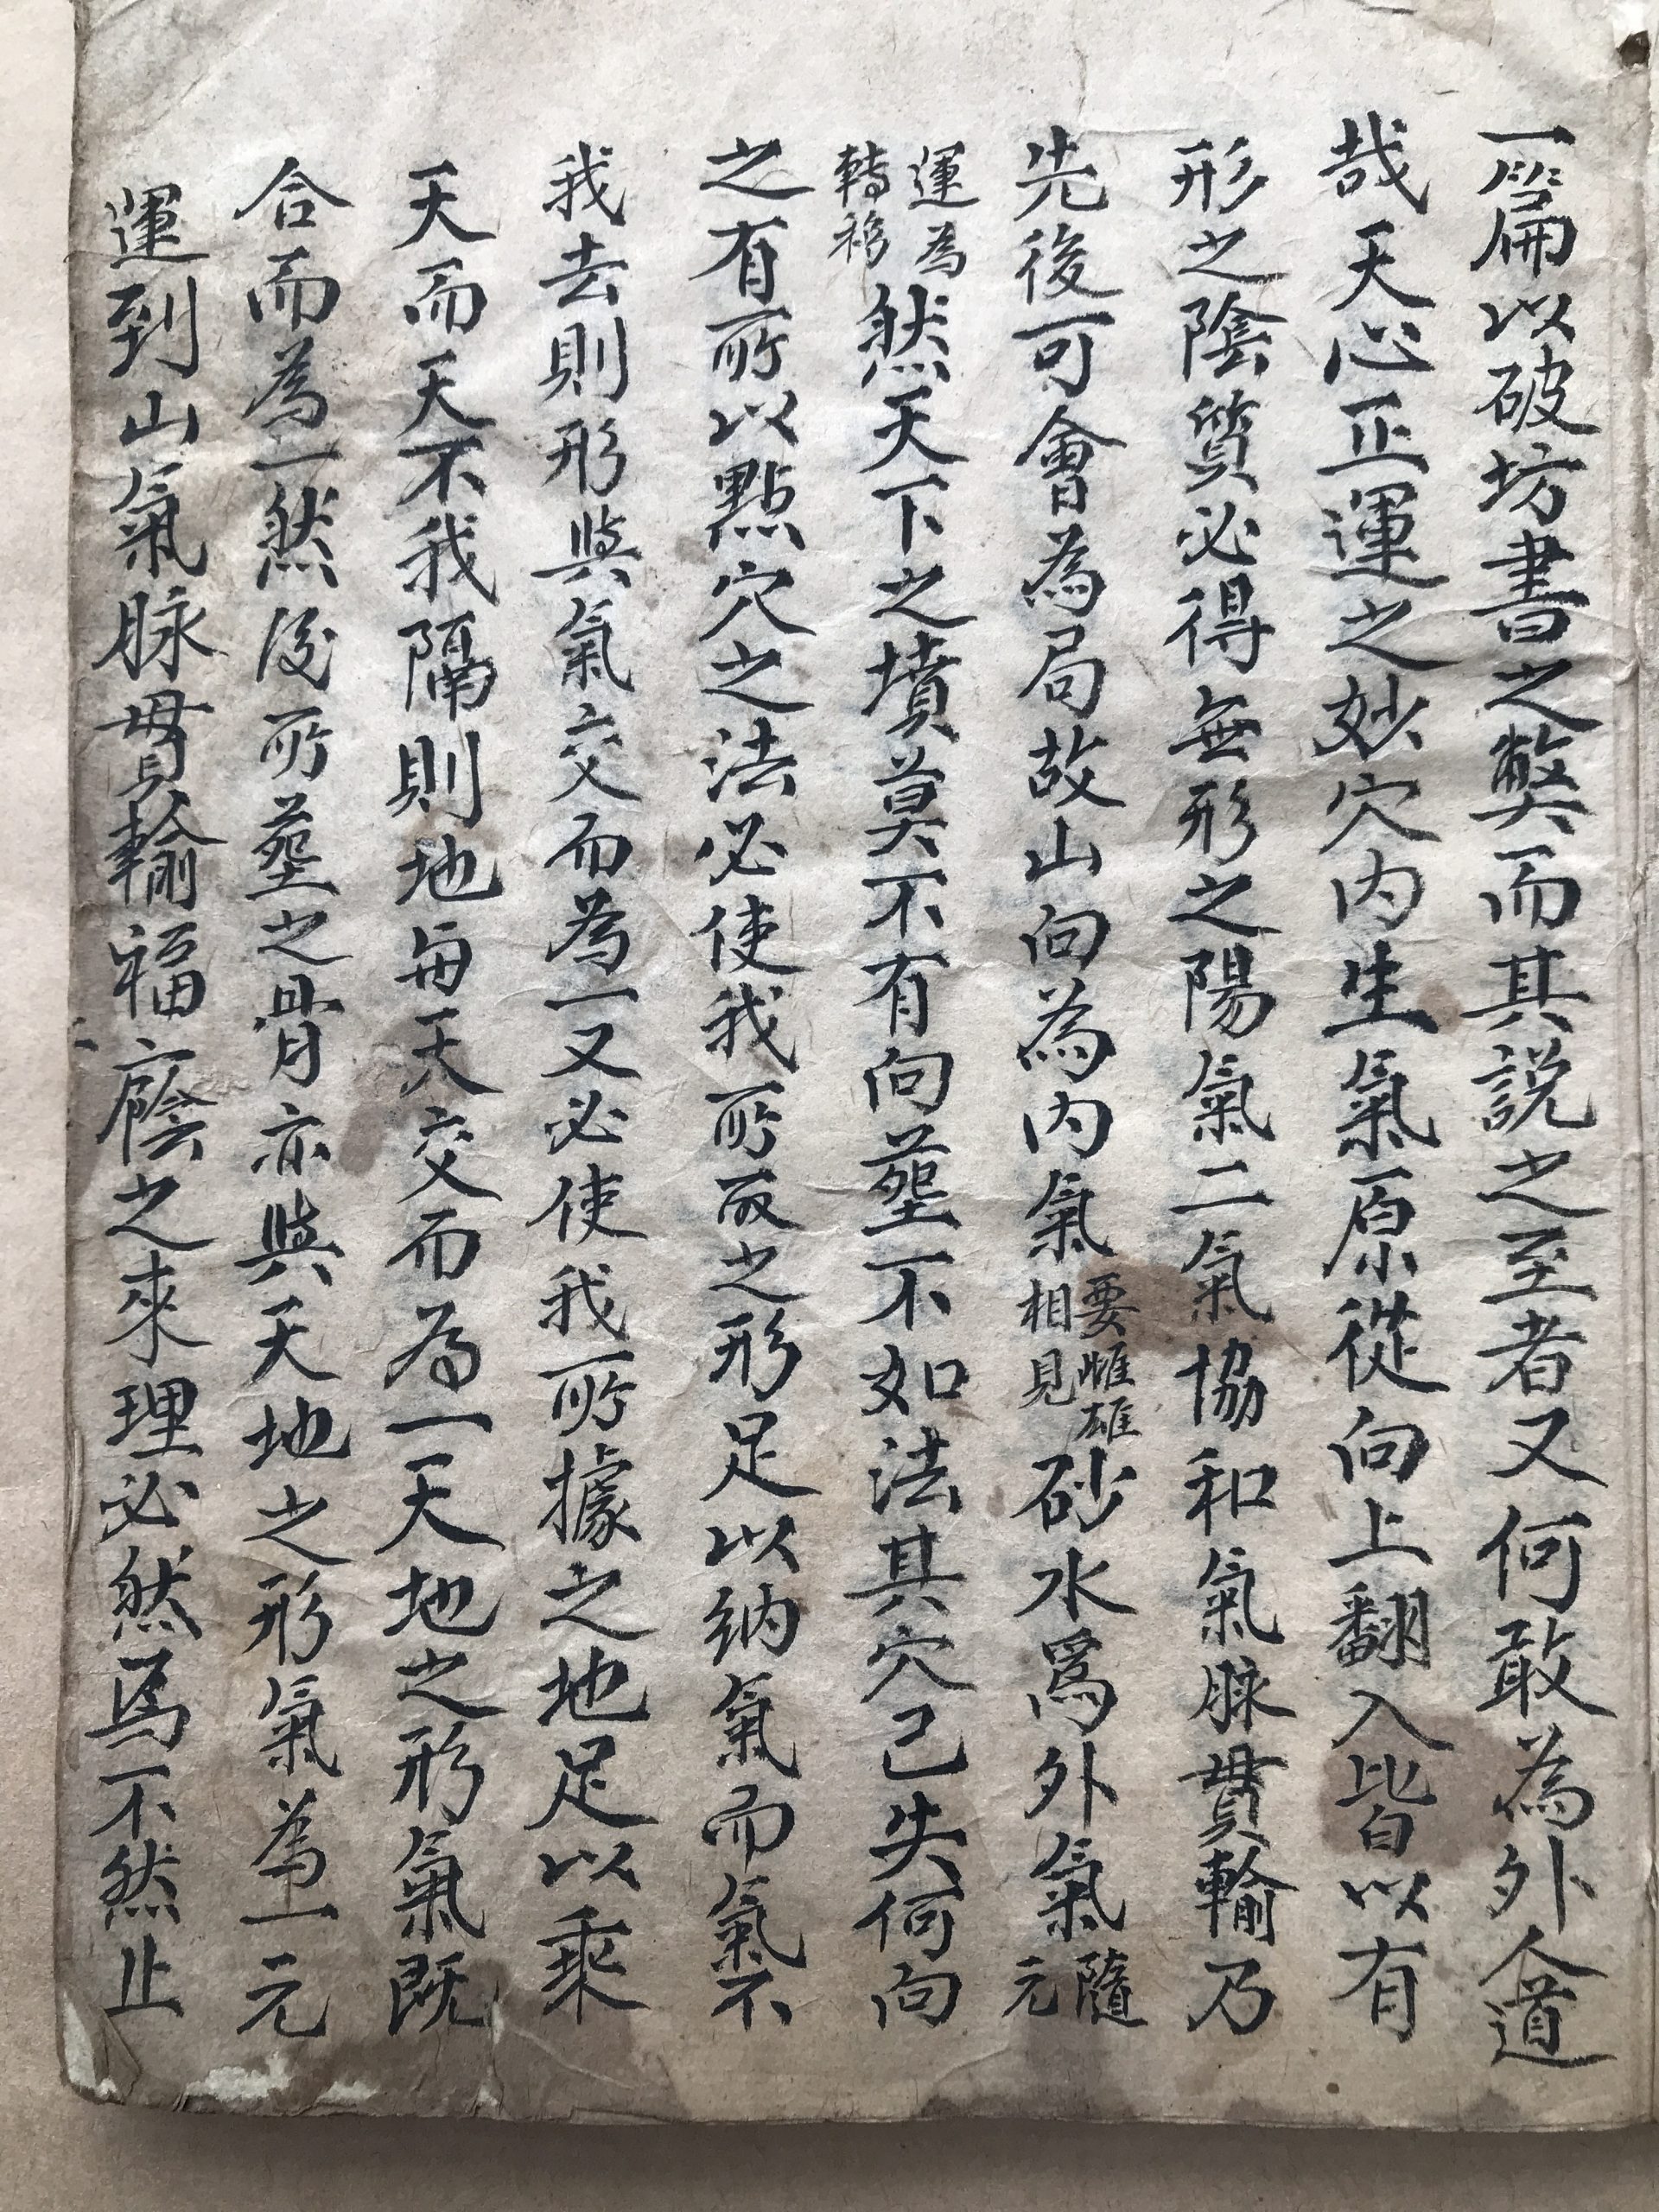 一篇以破坊書之獘而其説之至者又何敢為外人道
哉天心正運之妙穴内生氣原從向上翻入皆以有
形之陰質必得無形之陽氣二氣協和氣脉貫輸乃
先後可會為局故山向為内氣要雌雄相見砂水爲外氣隨元
運為轉移然天下之墳莫不有向塟不如法其穴已失何向
之有所以點穴之法必使我所取之形足以納氣而氣不
我去則形與氣交而為一又必使我所據之地足以乘
天而天不我隔則地每天交而為一天地之形氣既
合而為一然後所塟之骨亦與天地之形氣為一元
運到山氣脉貫輸福廕之來理必然焉不然止